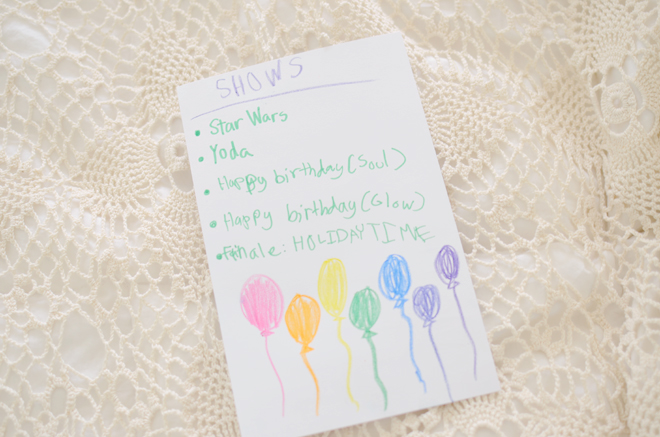 SHOWS
• Star Wars
• Yoda
• Happy birthday (Soul)
• Happy birthday (Glow)
• Finale: HOLIDAY TIME